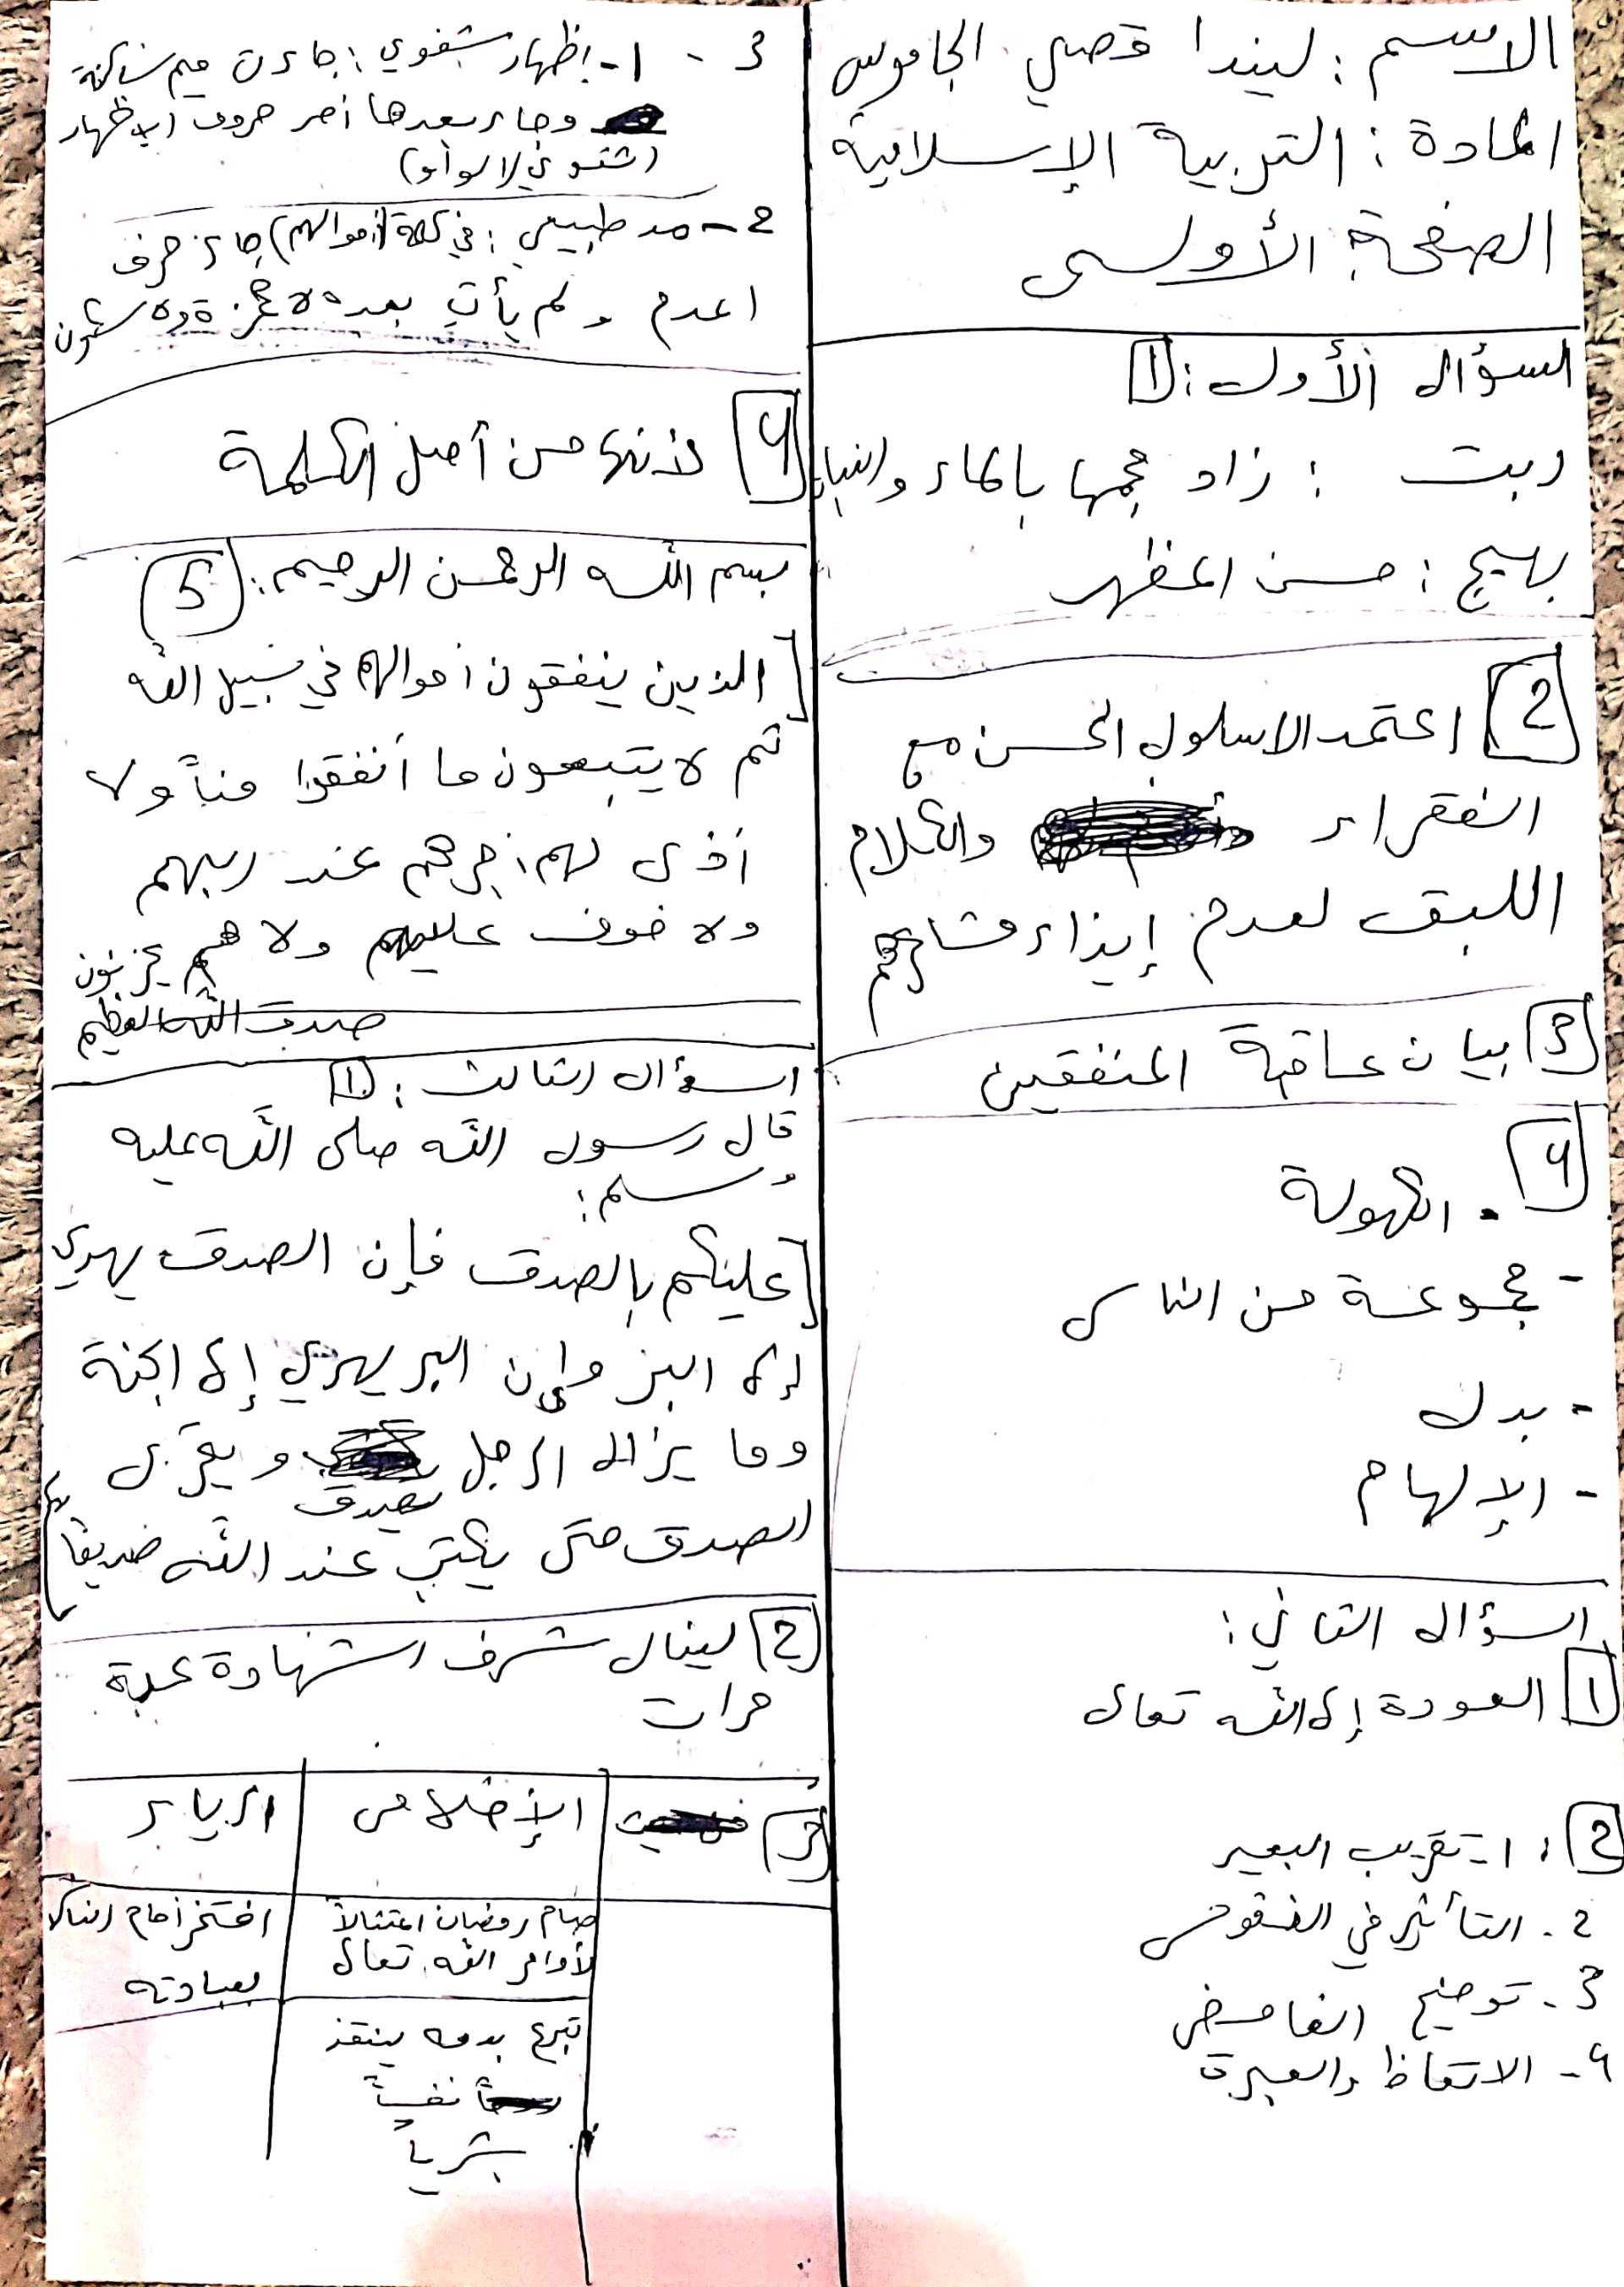 الاسم : ليندا قصي الجاموس
المادة : التربية الإسلامية
الصفحة الأولى
السؤال الأول : 1
ربت : زاد حجمها بالماء والنبات
بهيج : حسن المظهر
2 اعتمد الاسلوب الحسن مع
الفقراء والكلام
اللبق لعدم إيذاء مشاعرهم
3 بيان عاقبة المنفقين
4
- الكهولة
- مجموعة من الناس
- بدل
- الإلهام
السؤال الثاني :
1 العودة إلى الله تعالى
2 : 1- تقريب البعيد
2- التأثير في النفوس
3- توضيح الغامض
4- الاتعاظ والعبرة
3 - 1- إظهار شفوي : جاءت ميم ساكنة
وجاء بعدها أحد حروف الإظهار
(شفوي الواو)
2- مد طبيعي : في كلمة (أموالهم) جاء حرف
المد ولم يأت بعده لا همزة ولا سكون
4 لأنها من أصل الكلمة
5 بسم الله الرحمن الرحيم :
[الذين ينفقون أموالهم في سبيل الله
ثم لا يتبعون ما أنفقوا مناً ولا
أذى لهم أجرهم عند ربهم
ولا خوف عليهم ولا هم يحزنون
صدق الله العظيم
السؤال الثالث : 1
قال رسول الله صلى الله عليه
وسلم :
[عليكم بالصدق فإن الصدق يهدي
إلى البر وإن البر يهدي إلى الجنة
وما يزال الرجل يصدق ويتحرى
الصدق حتى يكتب عند الله صديقاً]
2 لينال شرف الشهادة عدة
مرات
3 الإخلاص الرياء
صام رمضان امتثالاً افتخر أمام الناس
لأوامر الله تعالى بعبادته
تبرع بدمه لينقذ
نفساً
بشرياً